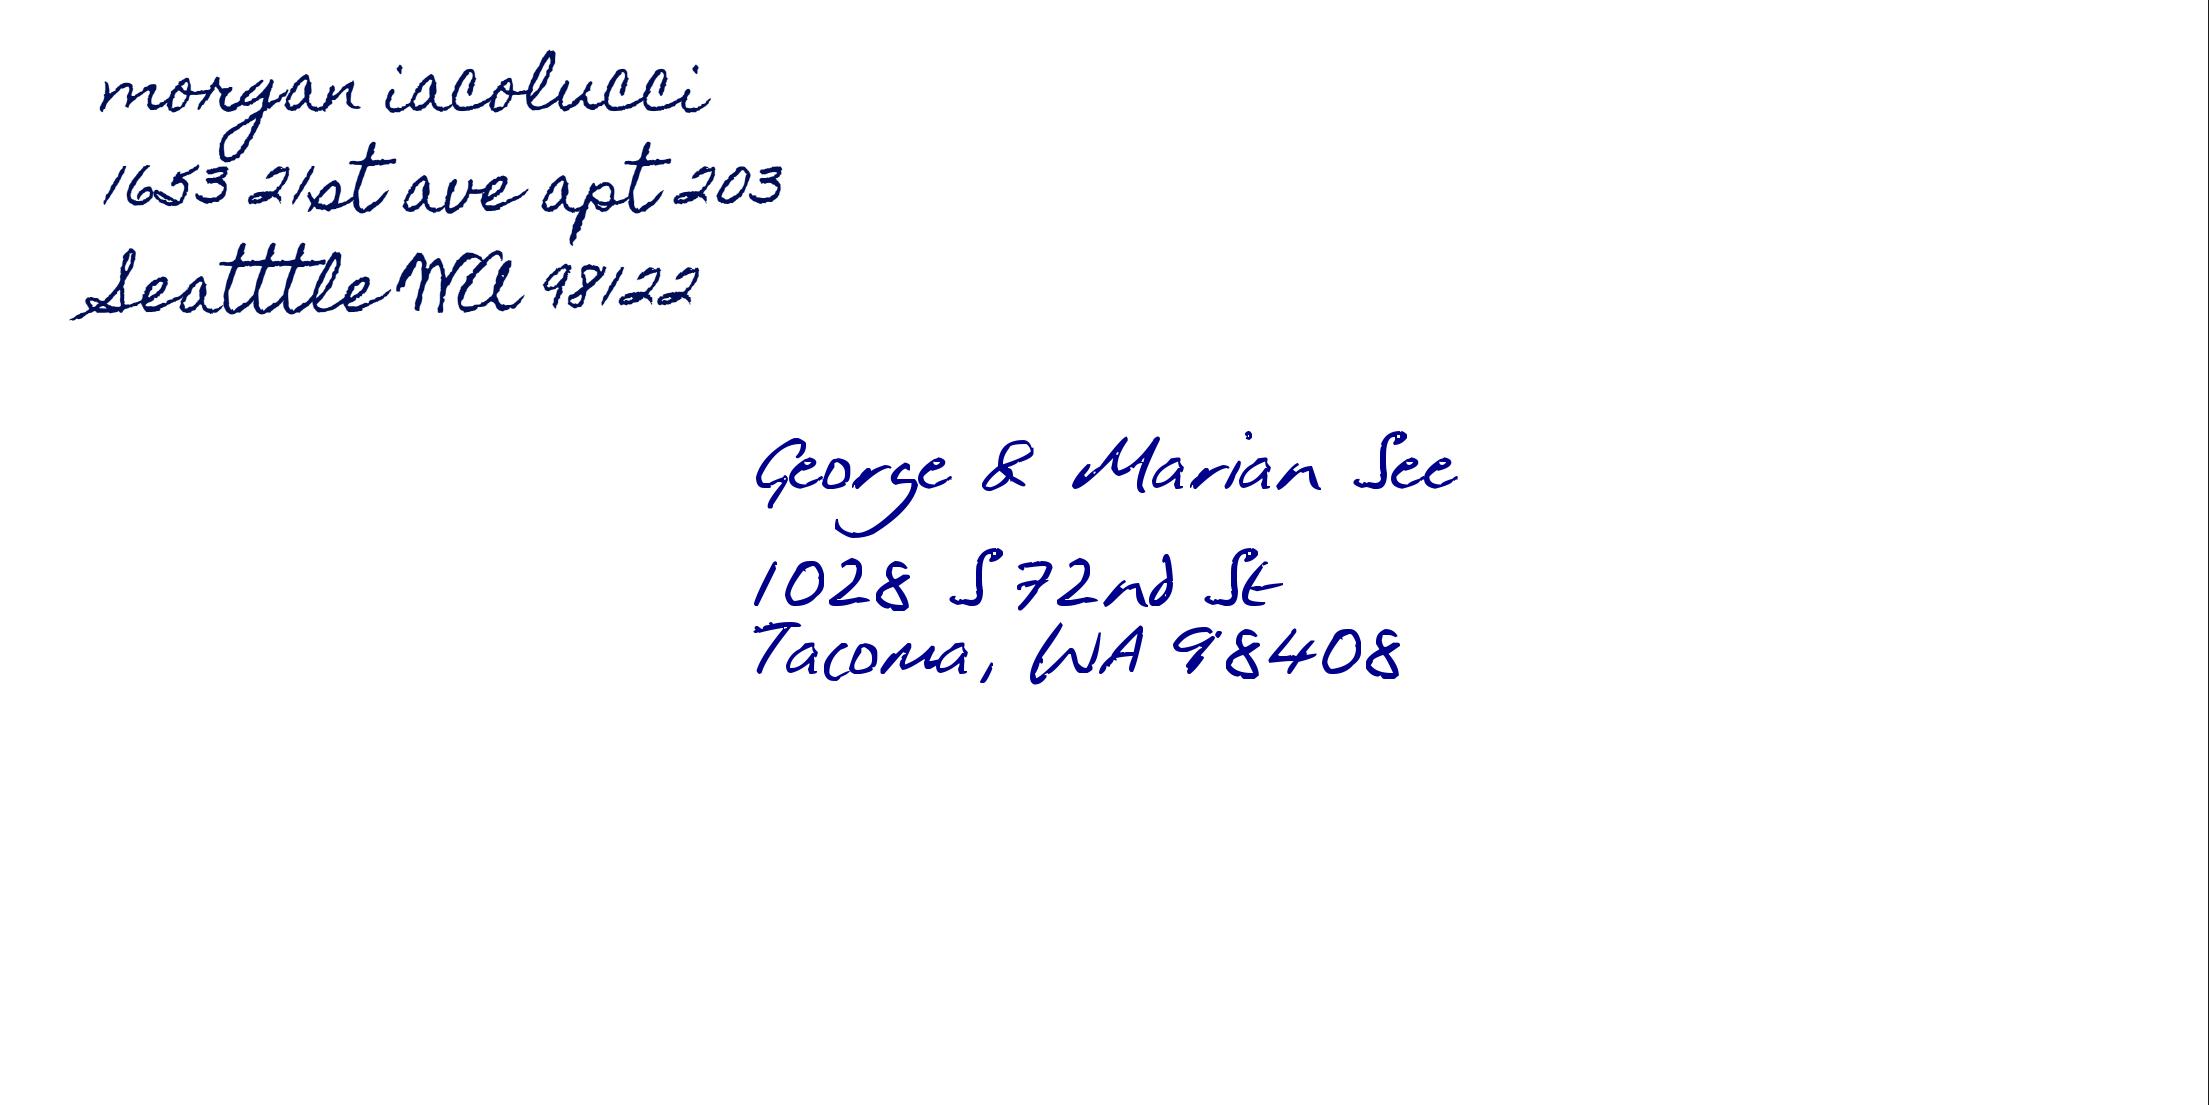 morgan iacolucci
1653 21st ave apt 203
Seatttle WA 98122
George & Marian See
1028 S 72nd St
Tacoma, WA 98408